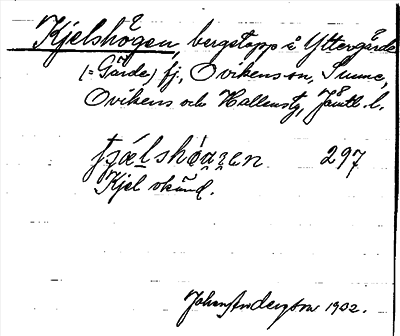 Kjelshögen, bergstopp i Yttergärde
(= Gärde) fj., Ovikens sn, Sunne,
Ovikens och Hallens tg, Jämtl. l.
297
Kjel okänd.
Johan Anderzon 1902.